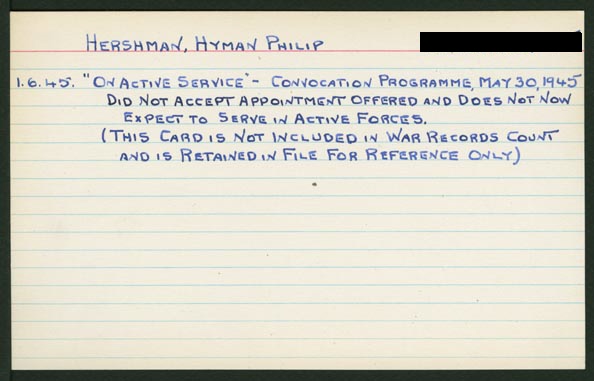 HERSHMAN, HYMAN PHILIP
1.6.45. "ON ACTIVE SERVICE" - CONVOCATION PROGRAMME, MAY 30, 1945
DID NOT ACCEPT APPOINTMENT OFFERED AND DOES NOT NOW
EXPECT TO SERVE IN ACTIVE FORCES.
(THIS CARD IS NOT INCLUDED IN WAR RECORDS COUNT
AND IS RETAINED IN FILE FOR REFERENCE ONLY)